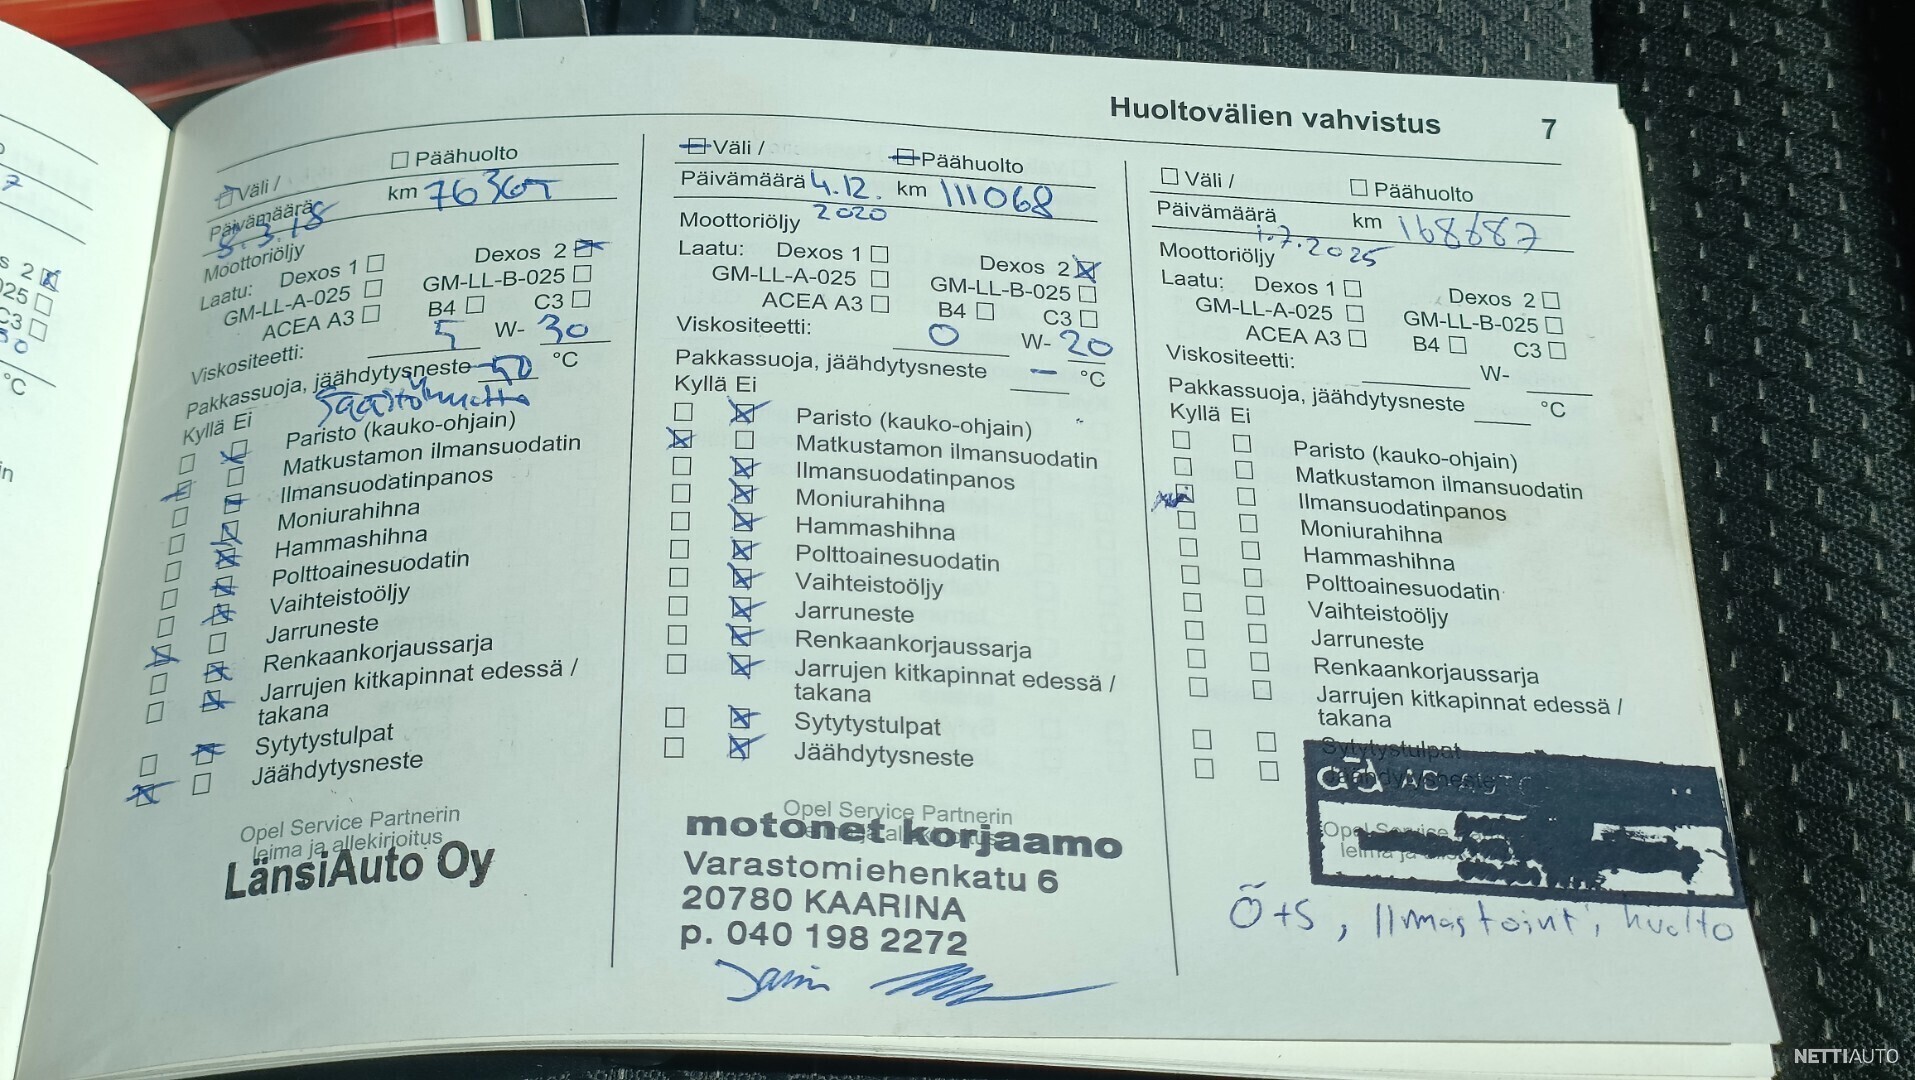 Huoltovälien vahvistus 7
Väli / Päähuolto
Päivämäärä km 76365
8.3.18
Moottoriöljy
Laatu: Dexos 1 Dexos 2
GM-LL-A-025 GM-LL-B-025
ACEA A3 B4 C3
Viskositeetti: 5 W- 30
Pakkassuoja, jäähdytysneste -40 °C
Kyllä Ei
Paristo (kauko-ohjain)
Matkustamon ilmansuodatin
Ilmansuodatinpanos
Moniurahihna
Hammashihna
Polttoainesuodatin
Vaihteistoöljy
Jarruneste
Renkaankorjaussarja
Jarrujen kitkapinnat edessä /
takana
Sytytystulpat
Jäähdytysneste
Opel Service Partnerin
leima ja allekirjoitus
LänsiAuto Oy
Väli / Päähuolto
Päivämäärä 4.12. km 111068
2020
Moottoriöljy
Laatu: Dexos 1 Dexos 2
GM-LL-A-025 GM-LL-B-025
ACEA A3 B4 C3
Viskositeetti: 0 W- 20
Pakkassuoja, jäähdytysneste - °C
Kyllä Ei
Paristo (kauko-ohjain)
Matkustamon ilmansuodatin
Ilmansuodatinpanos
Moniurahihna
Hammashihna
Polttoainesuodatin
Vaihteistoöljy
Jarruneste
Renkaankorjaussarja
Jarrujen kitkapinnat edessä /
takana
Sytytystulpat
Jäähdytysneste
Opel Service Partnerin
motonet korjaamo
Varastomiehenkatu 6
20780 KAARINA
p. 040 198 2272
Väli / Päähuolto
Päivämäärä km 168687
1.7.2025
Moottoriöljy
Laatu: Dexos 1 Dexos 2
GM-LL-A-025 GM-LL-B-025
ACEA A3 B4 C3
Viskositeetti: W-
Pakkassuoja, jäähdytysneste °C
Kyllä Ei
Paristo (kauko-ohjain)
Matkustamon ilmansuodatin
Ilmansuodatinpanos
Moniurahihna
Hammashihna
Polttoainesuodatin
Vaihteistoöljy
Jarruneste
Renkaankorjaussarja
Jarrujen kitkapinnat edessä /
takana
Sytytystulpat
Jäähdytysneste
Opel Service
leima ja
Ö+S, Ilmastoint, huolto
NETTIAUTO